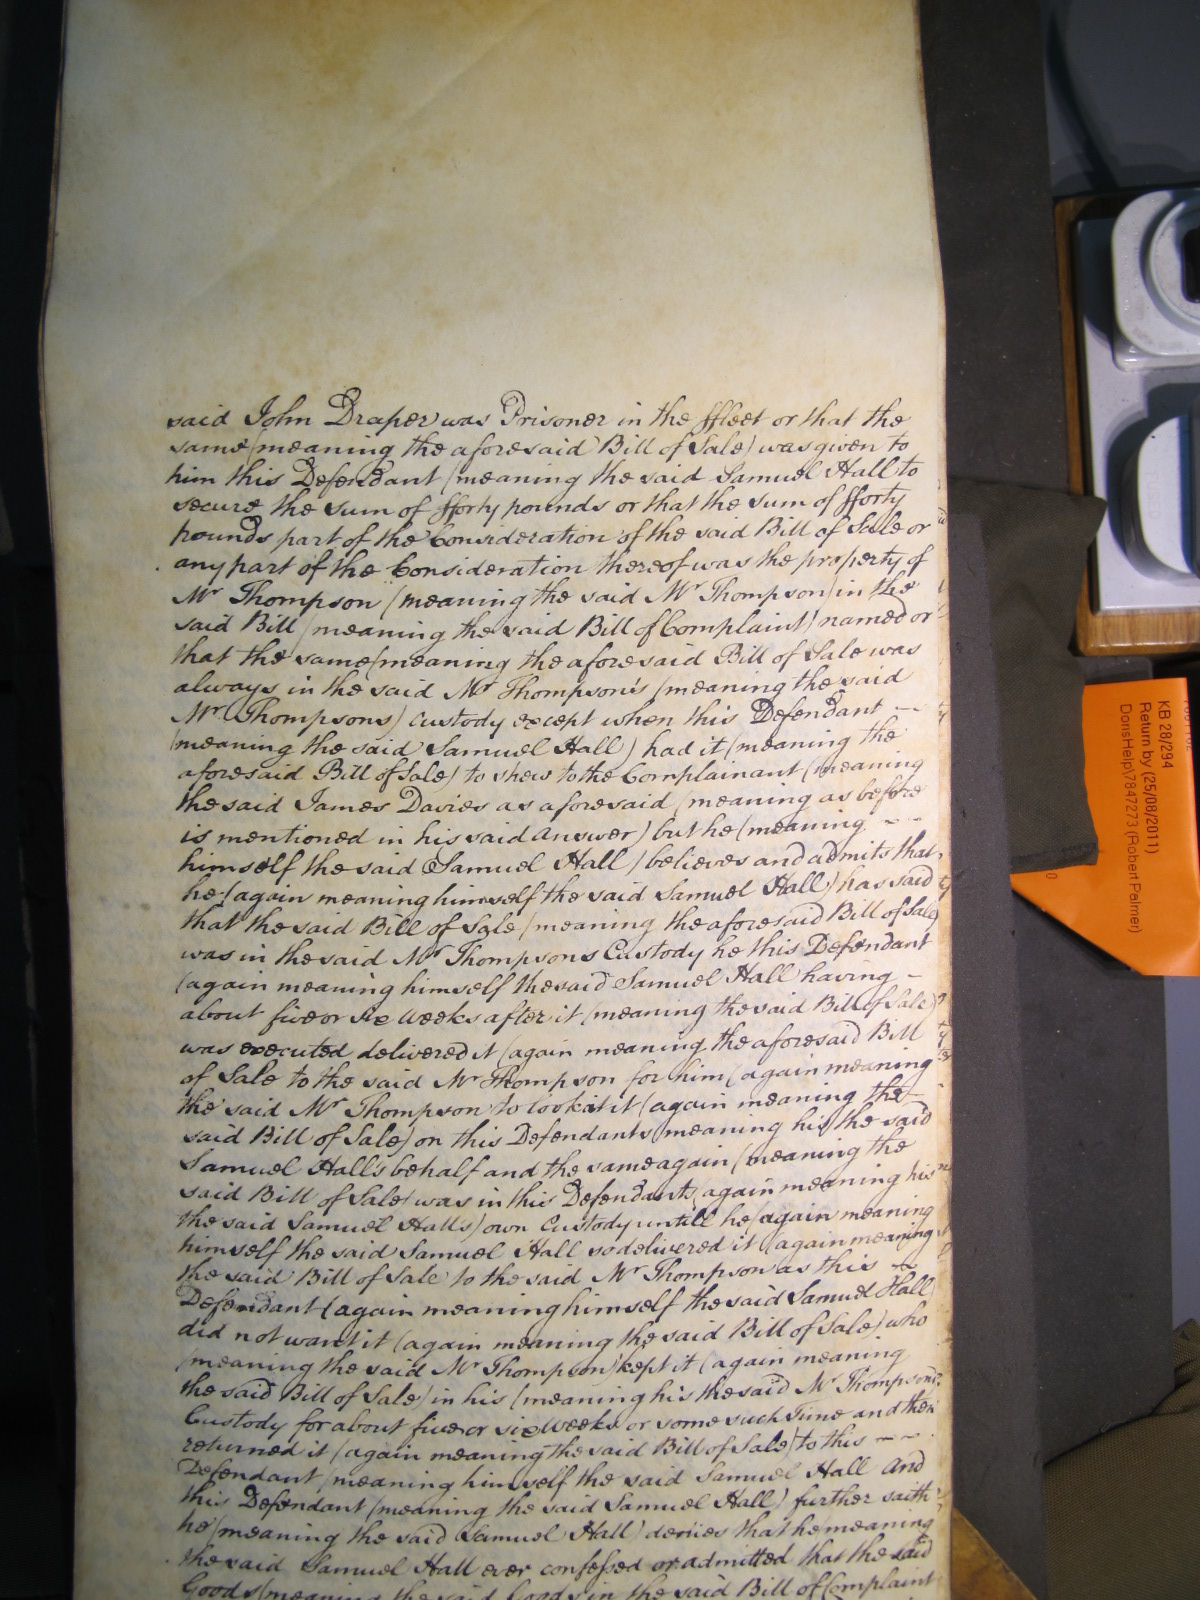 said John Draper was Prisoner in the ffleet or that the
same (meaning the aforesaid Bill of Sale) was given to
him this Defendant (meaning the said Samuel Hall to
secure the sum of fforty pounds or that the sum of fforty
pounds part of the Consideration of the said Bill of Sale or
any part of the Consideration thereof was the property of
Mr Thompson (meaning the said Mr Thompson) in the
said Bill (meaning the said Bill of Complaint) named or
that the same (meaning the aforesaid Bill of Sale was
always in the said Mr Thompson's (meaning the said
Mr Thompsons) custody except when this Defendant —
(meaning the said Samuel Hall) had it (meaning the
aforesaid Bill of Sale) to shew to the Complainant (meaning
the said James Davies as aforesaid (meaning as before
is mentioned in his said answer) but he (meaning - -
himself the said Samuel Hall) believes and admits that
he (again meaning himself the said Samuel Hall) has said
that the said Bill of Sale (meaning the aforesaid Bill of Sale
was in the said Mr Thompsons Custody he this Defendant
(again meaning himself the said Samuel Hall having -
about five or six weeks after it (meaning the said Bill of Sale)
was executed delivered it (again meaning the aforesaid Bill
of Sale to the said Mr Thompson for him (again meaning
the said Mr Thompson to look at it (again meaning the -
said Bill of Sale) on this Defendants (meaning his the said
Samuel Hall's behalf and the same again (meaning the
said Bill of Sale) was in this Defendants (again meaning his
the said Samuel Halls) own Custody untill he (again meaning
himself the said Samuel Hall so delivered it (again meaning
the said Bill of Sale to the said Mr Thompson as this -
Defendant (again meaning himself the said Samuel Hall)
did not want it (again meaning the said Bill of Sale) who
(meaning the said Mr Thompson) kept it (again meaning
the said Bill of Sale) in his (meaning his the said Mr Thompsons
Custody for about five or six weeks or some such Time and then
returned it (again meaning the said Bill of Sale) to this - -
Defendant (meaning himself the said Samuel Hall And
this Defendant (meaning the said Samuel Hall) further saith
he (meaning the said Samuel Hall) denies that he (meaning
the said Samuel Hall ever confessed or admitted that the said
Goods (meaning the said Goods in the said Bill of Complaint
KB 28/294
Return by (25/08/2011)
DorisHelp\7847273 (Robert Palmer)